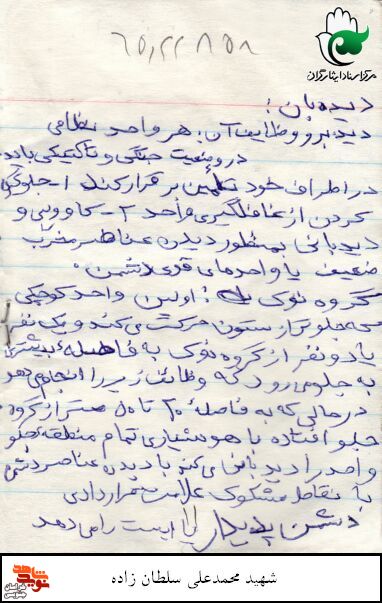 مرکز اسناد ایثارگران
۶۵٫۲۲۸۵۸
دیده‌بان:
دیدبرو وظایف آن: هر واحد نظامی
در وضعیت جنگی و تاکتیکی باید
در اطراف خود تأمین برقرار کند ۱- جلوگیری
کردن از غافلگیری واحد ۲- کاووش و
دیدبانی بمنظور دیدن عناصر مخرب
ضعیف یا واحدهای قوی دشمن.
گروه نوک: اولین واحد کوچکی
که جلوتر از ستون حرکت می‌کند و یک نفر
یا دو نفر از گروه نوک به فاصله بیشتری
به جلو می رود که وظائف زیر را انجام می‌دهد
در حالی که به فاصله ۲۰ تا ۵۰ متر از گروه
جلو افتاده با هوشیاری تمام منطقه جلو
واحد را دیدبانی می کند با دیدن عناصر دشمن
یا نقاط مشکوک علامت قراردادی
دشمن پدیدار یا ایست را می دهد
شهید محمدعلی سلطان زاده
نوید شاهد